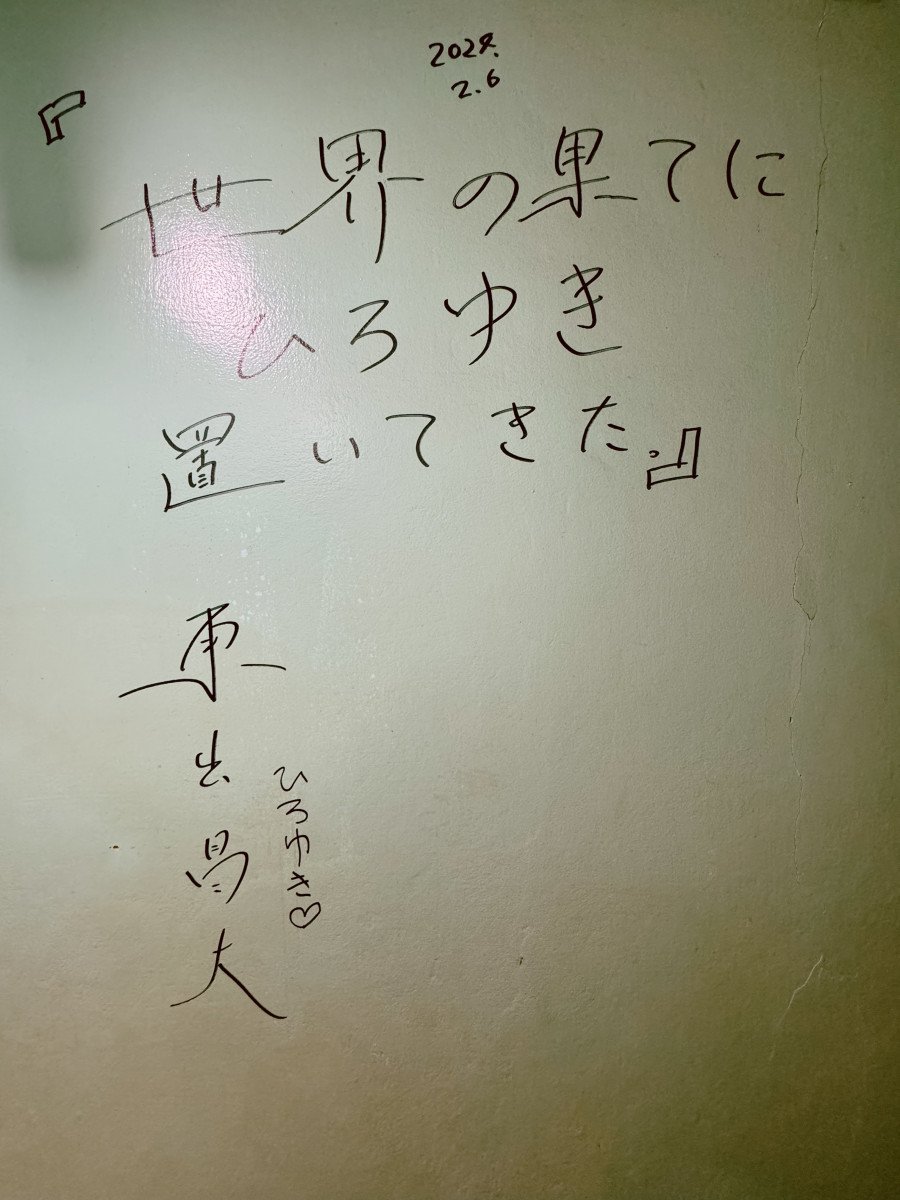 2024.
2.6
『世界の果てに
ひろゆき
置いてきた。』
東出昌大
ひろゆき♡